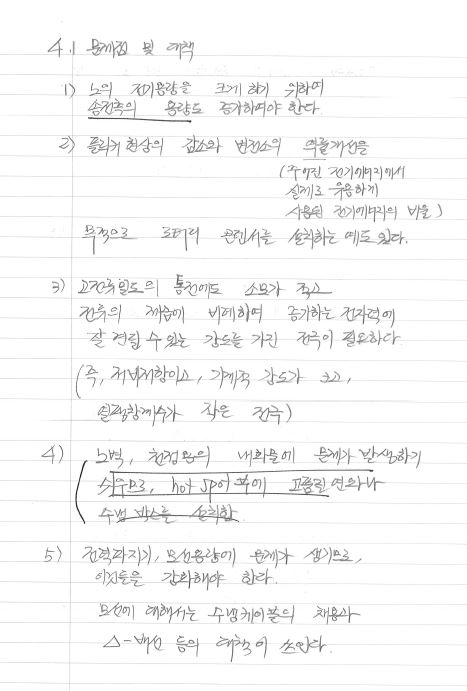 4.1 문제점 및 대책
1) 노의 전기용량을 크게 하기 위하여
송전측의 용량도 증가하여야 한다.
2) 플리커 현상의 감소와 변전소의 역률개선을
(주어진 전기에너지에서
실제로 유용하게
사용된 전기에너지의 비율)
목적으로 로터리 콘덴서를 설치하는 예도 있다.
3) 고전류밀도의 통전에도 소모가 적고
전류의 제곱에 비례하여 증가하는 전자력에
잘 견딜 수 있는 강도를 가진 전극이 필요하다
(즉, 저비저항이고, 기계적 강도가 크고,
열팽창계수가 작은 전극)
4) 노벽, 천정용의 내화물에 문제가 발생하기
쉬우므로, hot spot부에 고품질 연와나
수냉 박스를 설치함.
5) 전력관계기, 모선용량에 문제가 생기므로,
이것들을 강화해야 한다.
모선에 대해서는 수냉케이블의 채용과
△-배선 등의 대책이 쓰인다.